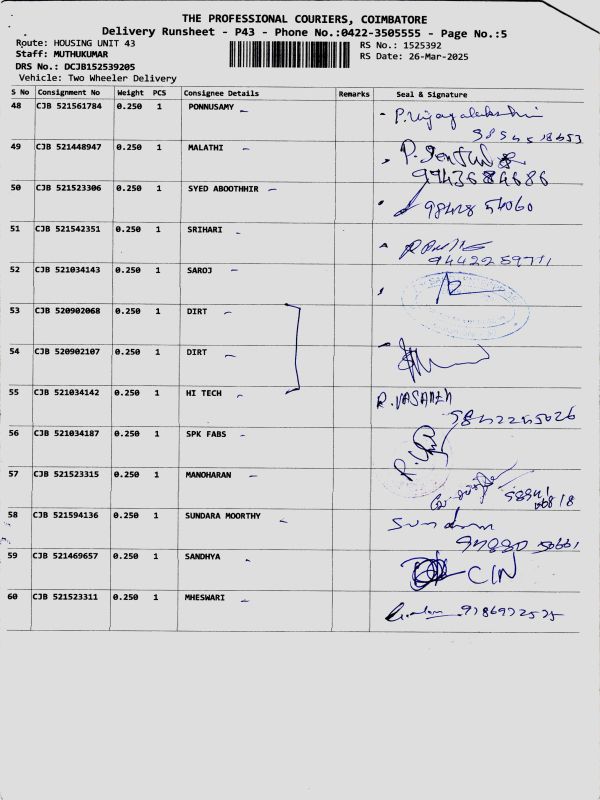 THE PROFESSIONAL COURIERS, COIMBATORE
Delivery Runsheet - P43 - Phone No.:0422-3505555 - Page No.:5
Route: HOUSING UNIT 43
RS No.: 1525392
Staff: MUTHUKUMAR
RS Date: 26-Mar-2025
DRS No.: DCJB152539205
Vehicle: Two Wheeler Delivery
S No Consignment No Weight PCS Consignee Details Remarks Seal & Signature
48 CJB 521561784 0.250 1 PONNUSAMY P.Vijayalakshmi
49 CJB 521448947 0.250 1 MALATHI
9943684686
50 CJB 521523306 0.250 1 SYED ABOOTHHIR 98428 54060
51 CJB 521542351 0.250 1 SRIHARI
9442259711
52 CJB 521034143 0.250 1 SAROJ
53 CJB 520902068 0.250 1 DIRT
54 CJB 520902107 0.250 1 DIRT
55 CJB 521034142 0.250 1 HI TECH R.VASANTH
56 CJB 521034187 0.250 1 SPK FABS
57 CJB 521523315 0.250 1 MANOHARAN
58 CJB 521594136 0.250 1 SUNDARA MOORTHY Sundaram
59 CJB 521469657 0.250 1 SANDHYA CIN
60 CJB 521523311 0.250 1 MHESWARI 9786972575